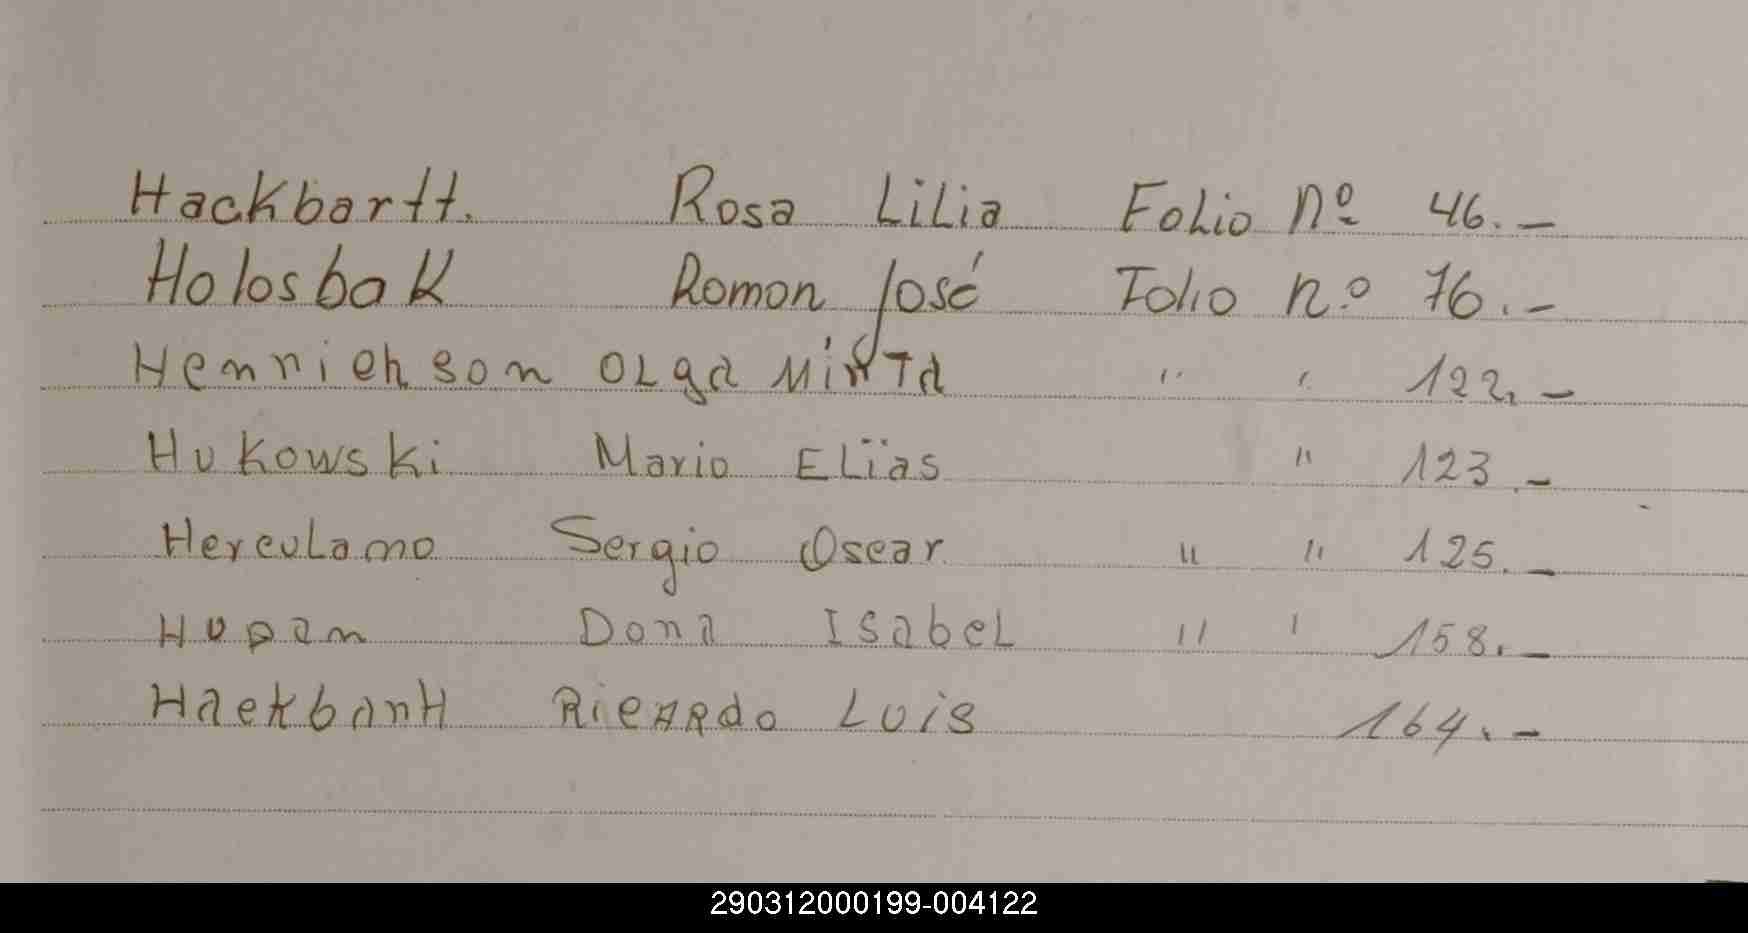 Hackbartt. Rosa Lilia Folio nº 46.-
Holosbak Romon José Folio nº 76.-
Hennichson Olga Mirta " " 122.-
Hukowski Mario Elias " 123.-
Herculano Sergio Oscar " " 125.-
Hupan Dona Isabel " " 158.-
Hackbartt Ricardo Luis 164.-
290312000199-004122